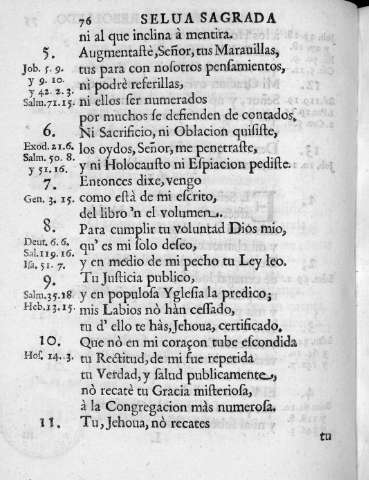 76 SELUA SAGRADA
ni al que inclina à mentira.
5. Augmentastè, Señor, tus Marauillas,
Job. 5. 9. tus para con nosotros pensamientos,
y 9. 10. ni podrè referillas,
y 42. 2. 3.
Salm. 71. 15. ni ellos ser numerados
por muchos se defienden de contados.
6. Ni Sacrificio, ni Oblacion quisiste,
Exod. 21. 6. los oydos, Señor, me penetraste,
Salm. 50. 8. y ni Holocausto ni Espiacion pediste.
y 51. 16.
7. Entonces dixe, vengo
Gen. 3. 15. como està de mi escrito,
del libro 'n el volumen.
8. Para cumplir tu voluntad Dios mio,
Deut. 6. 6. qu' es mi solo deseo,
Sal. 119. 16.
Isa. 51. 7. y en medio de mi pecho tu Ley leo.
9. Tu Justicia publico,
Salm. 35. 18 y en populosa Yglesia la predico;
Heb. 13. 15. mis Labios nò han cessado,
tu d' ello te hàs, Jehoua, certificado.
10. Que nò en mi coraçon tube escondida
Hos. 14. 3. tu Rectitud, de mi fue repetida
tu Verdad, y salud publicamente,
nò recatè tu Gracia misteriosa,
à la Congregacion màs numerosa.
11. Tu, Jehoua, nò recates
tu